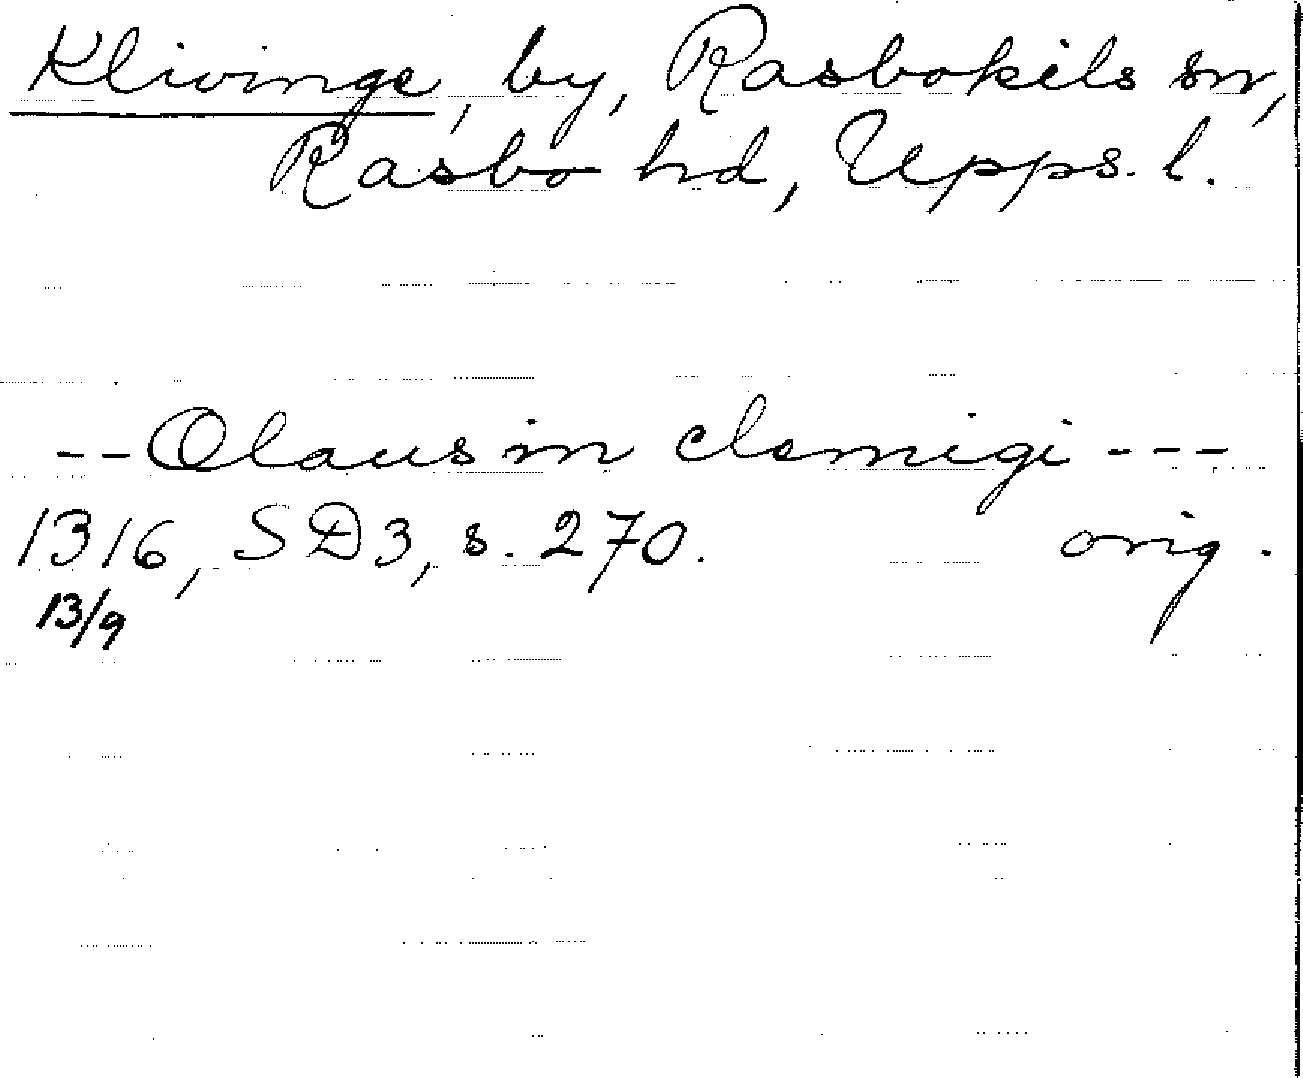 Klivinge, by, Rasbokils sn,
Rasbo hd, Upps. l.
-- Olaus in clemigi ---
1316, SD3, s. 270. orig.
13/9